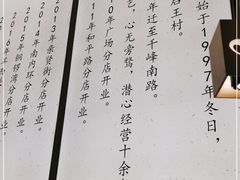 始于1997年冬日，
启王村。
年迁至千峰南路。
艺，心无旁骛，潜心经营十余
10年广场分店开业。
11年和平路分店开业。
2013年亲贤街分店开业。
2014年南内环分店开业。
2015年铜锣湾分店开业。